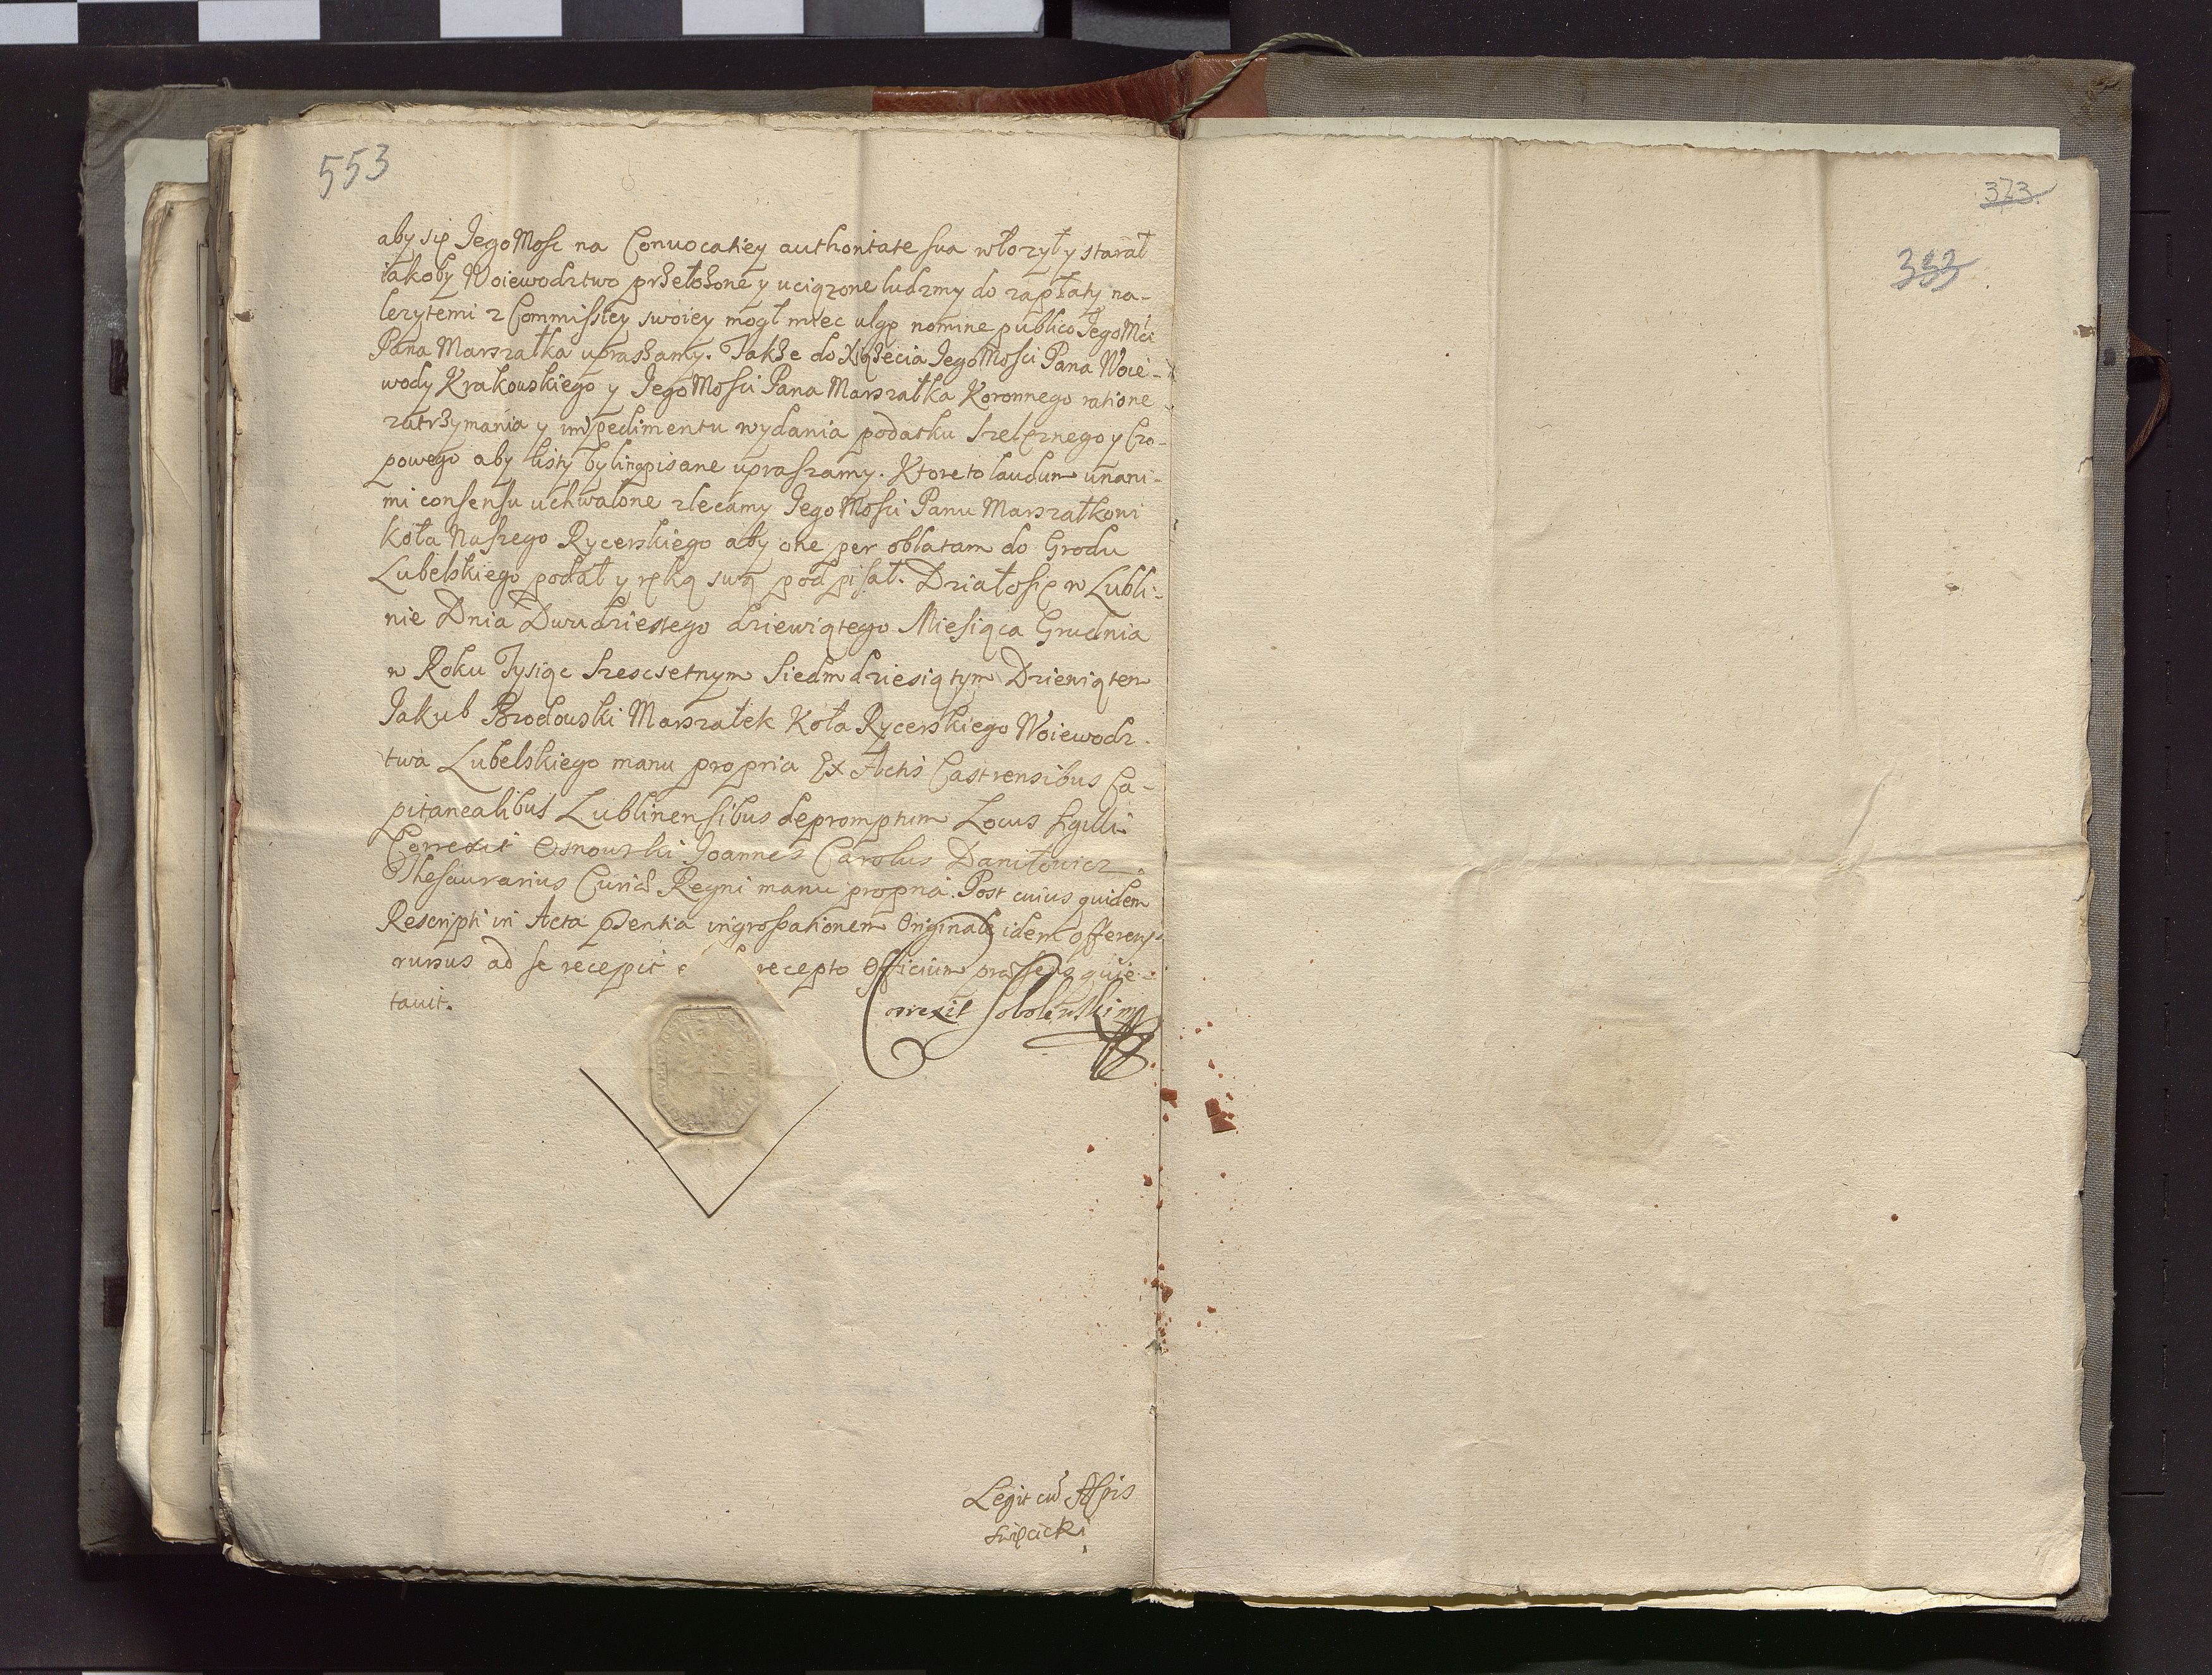 553
aby się Jego Mosc na Convocatiey authoritate sua włozył y starał
iakoby Woiewodztwo przełozone y uciązone ludzmy do zapłaty na-
lezytemi z Commissiey swoiey mogł miec ulgę nomine publico Jego Mci
Pana Marszałka upraszamy. Takze do Xiązecia Jego Mosci Pana Woie-
wody Krakowskiego y Jego Mosci Pana Marszałka Koronnego ratione
zatrzymania y impedimentu wydania podatku Szelęznego y Czo-
powego aby listy byli napisane upraszamy. Ktore to laudum unani-
mi consensu uchwalone zlecamy Jego Mosci Panu Marszałkowi
koła Naszego Rycerskiego aby one per oblatam do Grodu
Lubelskiego podał y ręką swą podpisał. Działosię w Lubli-
nie Dnia Dwudziestego dziewiątego Miesiąca Grudnia
w Roku Tysiąc Szescsetnym Siedmdziesiątym Dziewiątem
Jakub Brodowski Marszałek Koła Rycerskiego Woiewodz-
twa Lubelskiego manu propria Ex Actis Castrensibus Ca-
pitanealibus Lublinensibus depromptum Locus Sigilli
Correxit Osnowski Joannes Carolus Daniłowicz
Thesaurarius Curiæ Regni manu propria. Post cuius quidem
Rescripti in Acta pñtia ingrossationem Originale idem offerens
rursus ad se recepit recepto Officium præsens quie-
tauit.
Correxit Sobolewski mp
Legit cũ Actis
Swięcicki
373
353